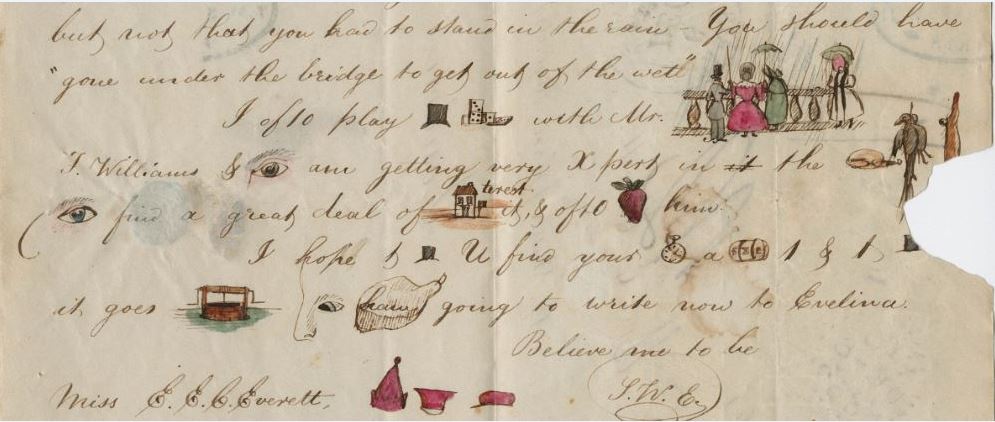 but not that you had to stand in the rain – You should have
"gone under the bridge to get out of the wett"
I of10 play with Mr.
Williams & am getting very X pert in it the
find a great deal of terest it, & of10 him.
I hope t U find your a 1 & t
it goes ham going to write now to Evelina.
Believe me to be
Miss E. E. C. Everett, S.W.E.